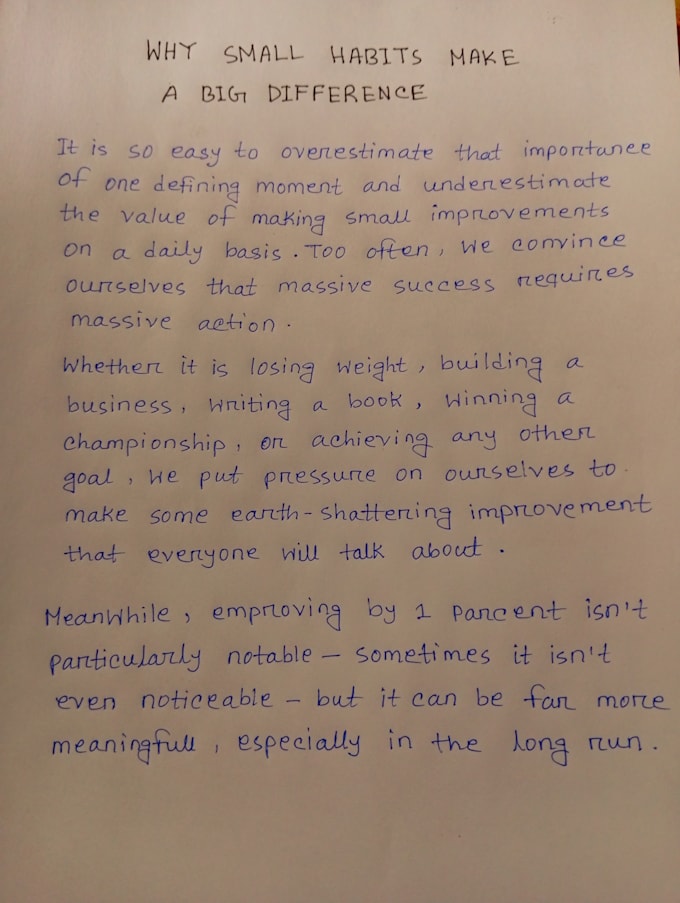 WHY SMALL HABITS MAKE
A BIG DIFFERENCE
It is so easy to overestimate that importance
of one defining moment and underestimate
the value of making small improvements
on a daily basis. Too often, we convince
ourselves that massive success requires
massive action.
Whether it is losing weight, building a
business, writing a book, winning a
championship, or achieving any other
goal, we put pressure on ourselves to
make some earth-shattering improvement
that everyone will talk about.
Meanwhile, emproving by 1 Parcent isn't
particularly notable - sometimes it isn't
even noticeable - but it can be far more
meaningfull, especially in the long run.